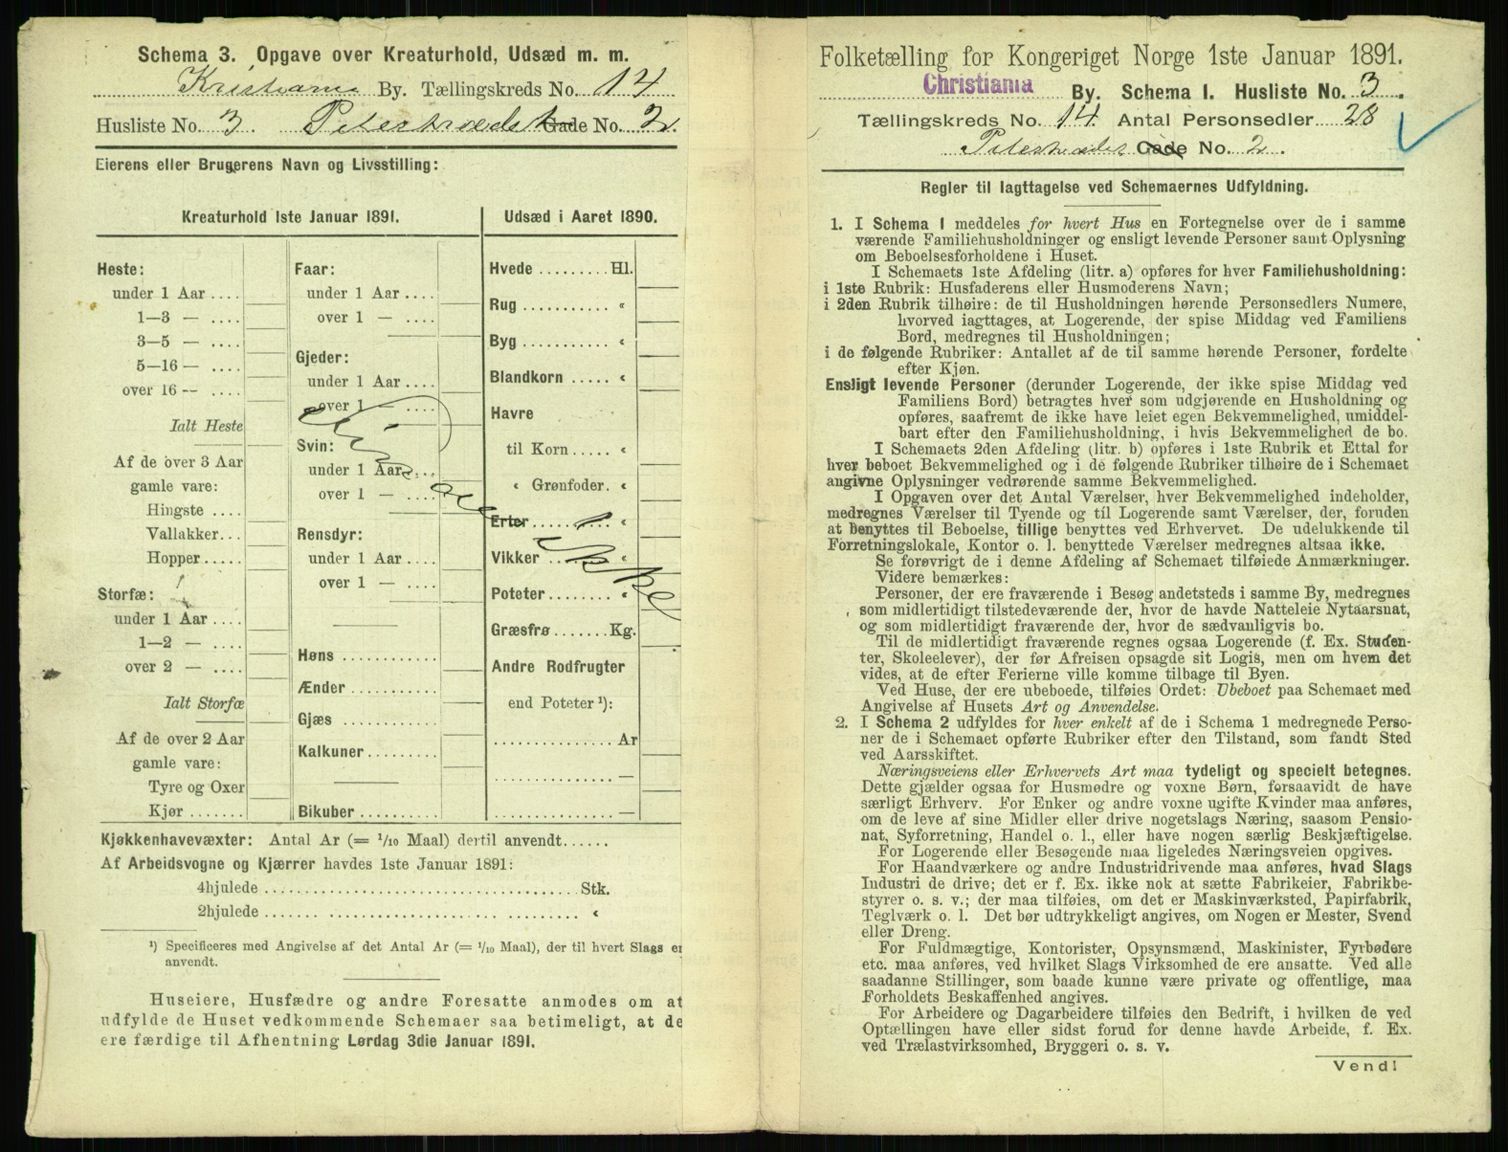 Schema 3. Opgave over Kreaturhold, Udsæd m. m.
Kristiania By. Tællingskreds No. 14
Husliste No. 3. Pilestrædet Gade No. 2.
Eierens eller Brugerens Navn og Livsstilling:
Kreaturhold 1ste Januar 1891.
Heste:
under 1 Aar ....
1—3 — ....
3—5 — ....
5—16 — ....
over 16 — ....
Ialt Heste
Af de over 3 Aar
gamle vare:
Hingste ....
Vallakker...
Hopper .....
Storfæ:
under 1 Aar ....
1—2 — ....
over 2 — ....
Ialt Storfæ
Af de over 2 Aar
gamle vare:
Tyre og Oxer
Kjør ........
Faar:
under 1 Aar ....
over 1 — ....
Gjeder:
under 1 Aar ....
over 1 — ....
Svin:
under 1 Aar ....
over 1 — ....
Rensdyr:
under 1 Aar ....
over 1 — ....
Høns ............
Ænder ...........
Gjæs ............
Kalkuner ........
Bikuber .........
Udsæd i Aaret 1890.
Hvede ......... Hl.
Rug ........... «
Byg ........... «
Blandkorn ..... «
Havre
til Korn ..... «
« Grønfoder. «
Erter ......... «
Vikker ........ «
Poteter ....... «
Græsfrø ....... Kg.
Andre Rodfrugter
end Poteter ¹):
............... Ar
............... —
............... —
ikke
Kjøkkenhavevæxter: Antal Ar (= 1/10 Maal) dertil anvendt......
Af Arbeidsvogne og Kjærrer havdes 1ste Januar 1891:
4hjulede ........................................ Stk.
2hjulede ........................................ «
¹) Specificeres med Angivelse af det Antal Ar (= 1/10 Maal), der til hvert Slags er
anvendt.
Huseiere, Husfædre og andre Foresatte anmodes om at
udfylde de Huset vedkommende Schemaer saa betimeligt, at de
ere færdige til Afhentning Lørdag 3die Januar 1891.
Folketælling for Kongeriget Norge 1ste Januar 1891.
Christiania By. Schema I. Husliste No. 3.
Tællingskreds No. 14. Antal Personsedler 28
Pilestrædet Gade No. 2.
Regler til Iagttagelse ved Schemaernes Udfyldning.
1. I Schema I meddeles for hvert Hus en Fortegnelse over de i samme
værende Familiehusholdninger og ensligt levende Personer samt Oplysning
om Beboelsesforholdene i Huset.
I Schemaets 1ste Afdeling (litr. a) opføres for hver Familiehusholdning:
i 1ste Rubrik: Husfaderens eller Husmoderens Navn;
i 2den Rubrik tilhøire: de til Husholdningen hørende Personsedlers Numere,
hvorved iagttages, at Logerende, der spise Middag ved Familiens
Bord, medregnes til Husholdningen;
i de følgende Rubriker: Antallet af de til samme hørende Personer, fordelte
efter Kjøn.
Ensligt levende Personer (derunder Logerende, der ikke spise Middag ved
Familiens Bord) betragtes hver som udgjørende en Husholdning og
opføres, saafremt de ikke have leiet egen Bekvemmelighed, umiddel-
bart efter den Familiehusholdning, i hvis Bekvemmelighed de bo.
I Schemaets 2den Afdeling (litr. b) opføres i 1ste Rubrik et Ettal for
hver beboet Bekvemmelighed og i de følgende Rubriker tilhøire de i Schemaet
angivne Oplysninger vedrørende samme Bekvemmelighed.
I Opgaven over det Antal Værelser, hver Bekvemmelighed indeholder,
medregnes Værelser til Tyende og til Logerende samt Værelser, der, foruden
at benyttes til Beboelse, tillige benyttes ved Erhvervet. De udelukkende til
Forretningslokale, Kontor o. l. benyttede Værelser medregnes altsaa ikke.
Se forøvrigt de i denne Afdeling af Schemaet tilføiede Anmærkninger.
Videre bemærkes:
Personer, der ere fraværende i Besøg andetsteds i samme By, medregnes
som midlertidigt tilstedeværende der, hvor de havde Natteleie Nytaarsnat,
og som midlertidigt fraværende der, hvor de sædvanligvis bo.
Til de midlertidigt fraværende regnes ogsaa Logerende (f. Ex. Studen-
ter, Skoleelever), der før Afreisen opsagde sit Logis, men om hvem det
vides, at de efter Ferierne ville komme tilbage til Byen.
Ved Huse, der ere ubeboede, tilføies Ordet: Ubeboet paa Schemaet med
Angivelse af Husets Art og Anvendelse.
2. I Schema 2 udfyldes for hver enkelt af de i Schema 1 medregnede Perso-
ner de i Schemaet opførte Rubriker efter den Tilstand, som fandt Sted
ved Aarsskiftet.
Næringsveiens eller Erhvervets Art maa tydeligt og specielt betegnes.
Dette gjælder ogsaa for Husmødre og voxne Børn, forsaavidt de have
særligt Erhverv. For Enker og andre voxne ugifte Kvinder maa anføres,
om de leve af sine Midler eller drive nogetslags Næring, saasom Pensio-
nat, Syforretning, Handel o. l., eller have nogen særlig Beskjæftigelse.
For Logerende eller Besøgende maa ligeledes Næringsveien opgives.
For Haandværkere og andre Industridrivende maa anføres, hvad Slags
Industri de drive; det er f. Ex. ikke nok at sætte Fabrikeier, Fabrikbe-
styrer o. s. v.; der maa tilføies, om det er Maskinværksted, Papirfabrik,
Teglværk o. l. Det bør udtrykkeligt angives, om Nogen er Mester, Svend
eller Dreng.
For Fuldmægtige, Kontorister, Opsynsmænd, Maskinister, Fyrbødere
etc. maa anføres, ved hvilket Slags Virksomhed de ere ansatte. Ved alle
saadanne Stillinger, som baade kunne være private og offentlige, maa
Forholdets Beskaffenhed angives.
For Arbeidere og Dagarbeidere tilføies den Bedrift, i hvilken de ved
Optællingen have eller sidst forud for denne havde Arbeide, f. Ex.
ved Trælastvirksomhed, Bryggeri o. s. v.
Vend!